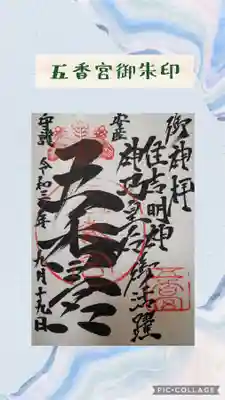 五香宮御朱印
御神拝
住吉明神
神功皇后御活躍
安産
五香宮
令和三年 九月十九日
PIC•COLLAGE